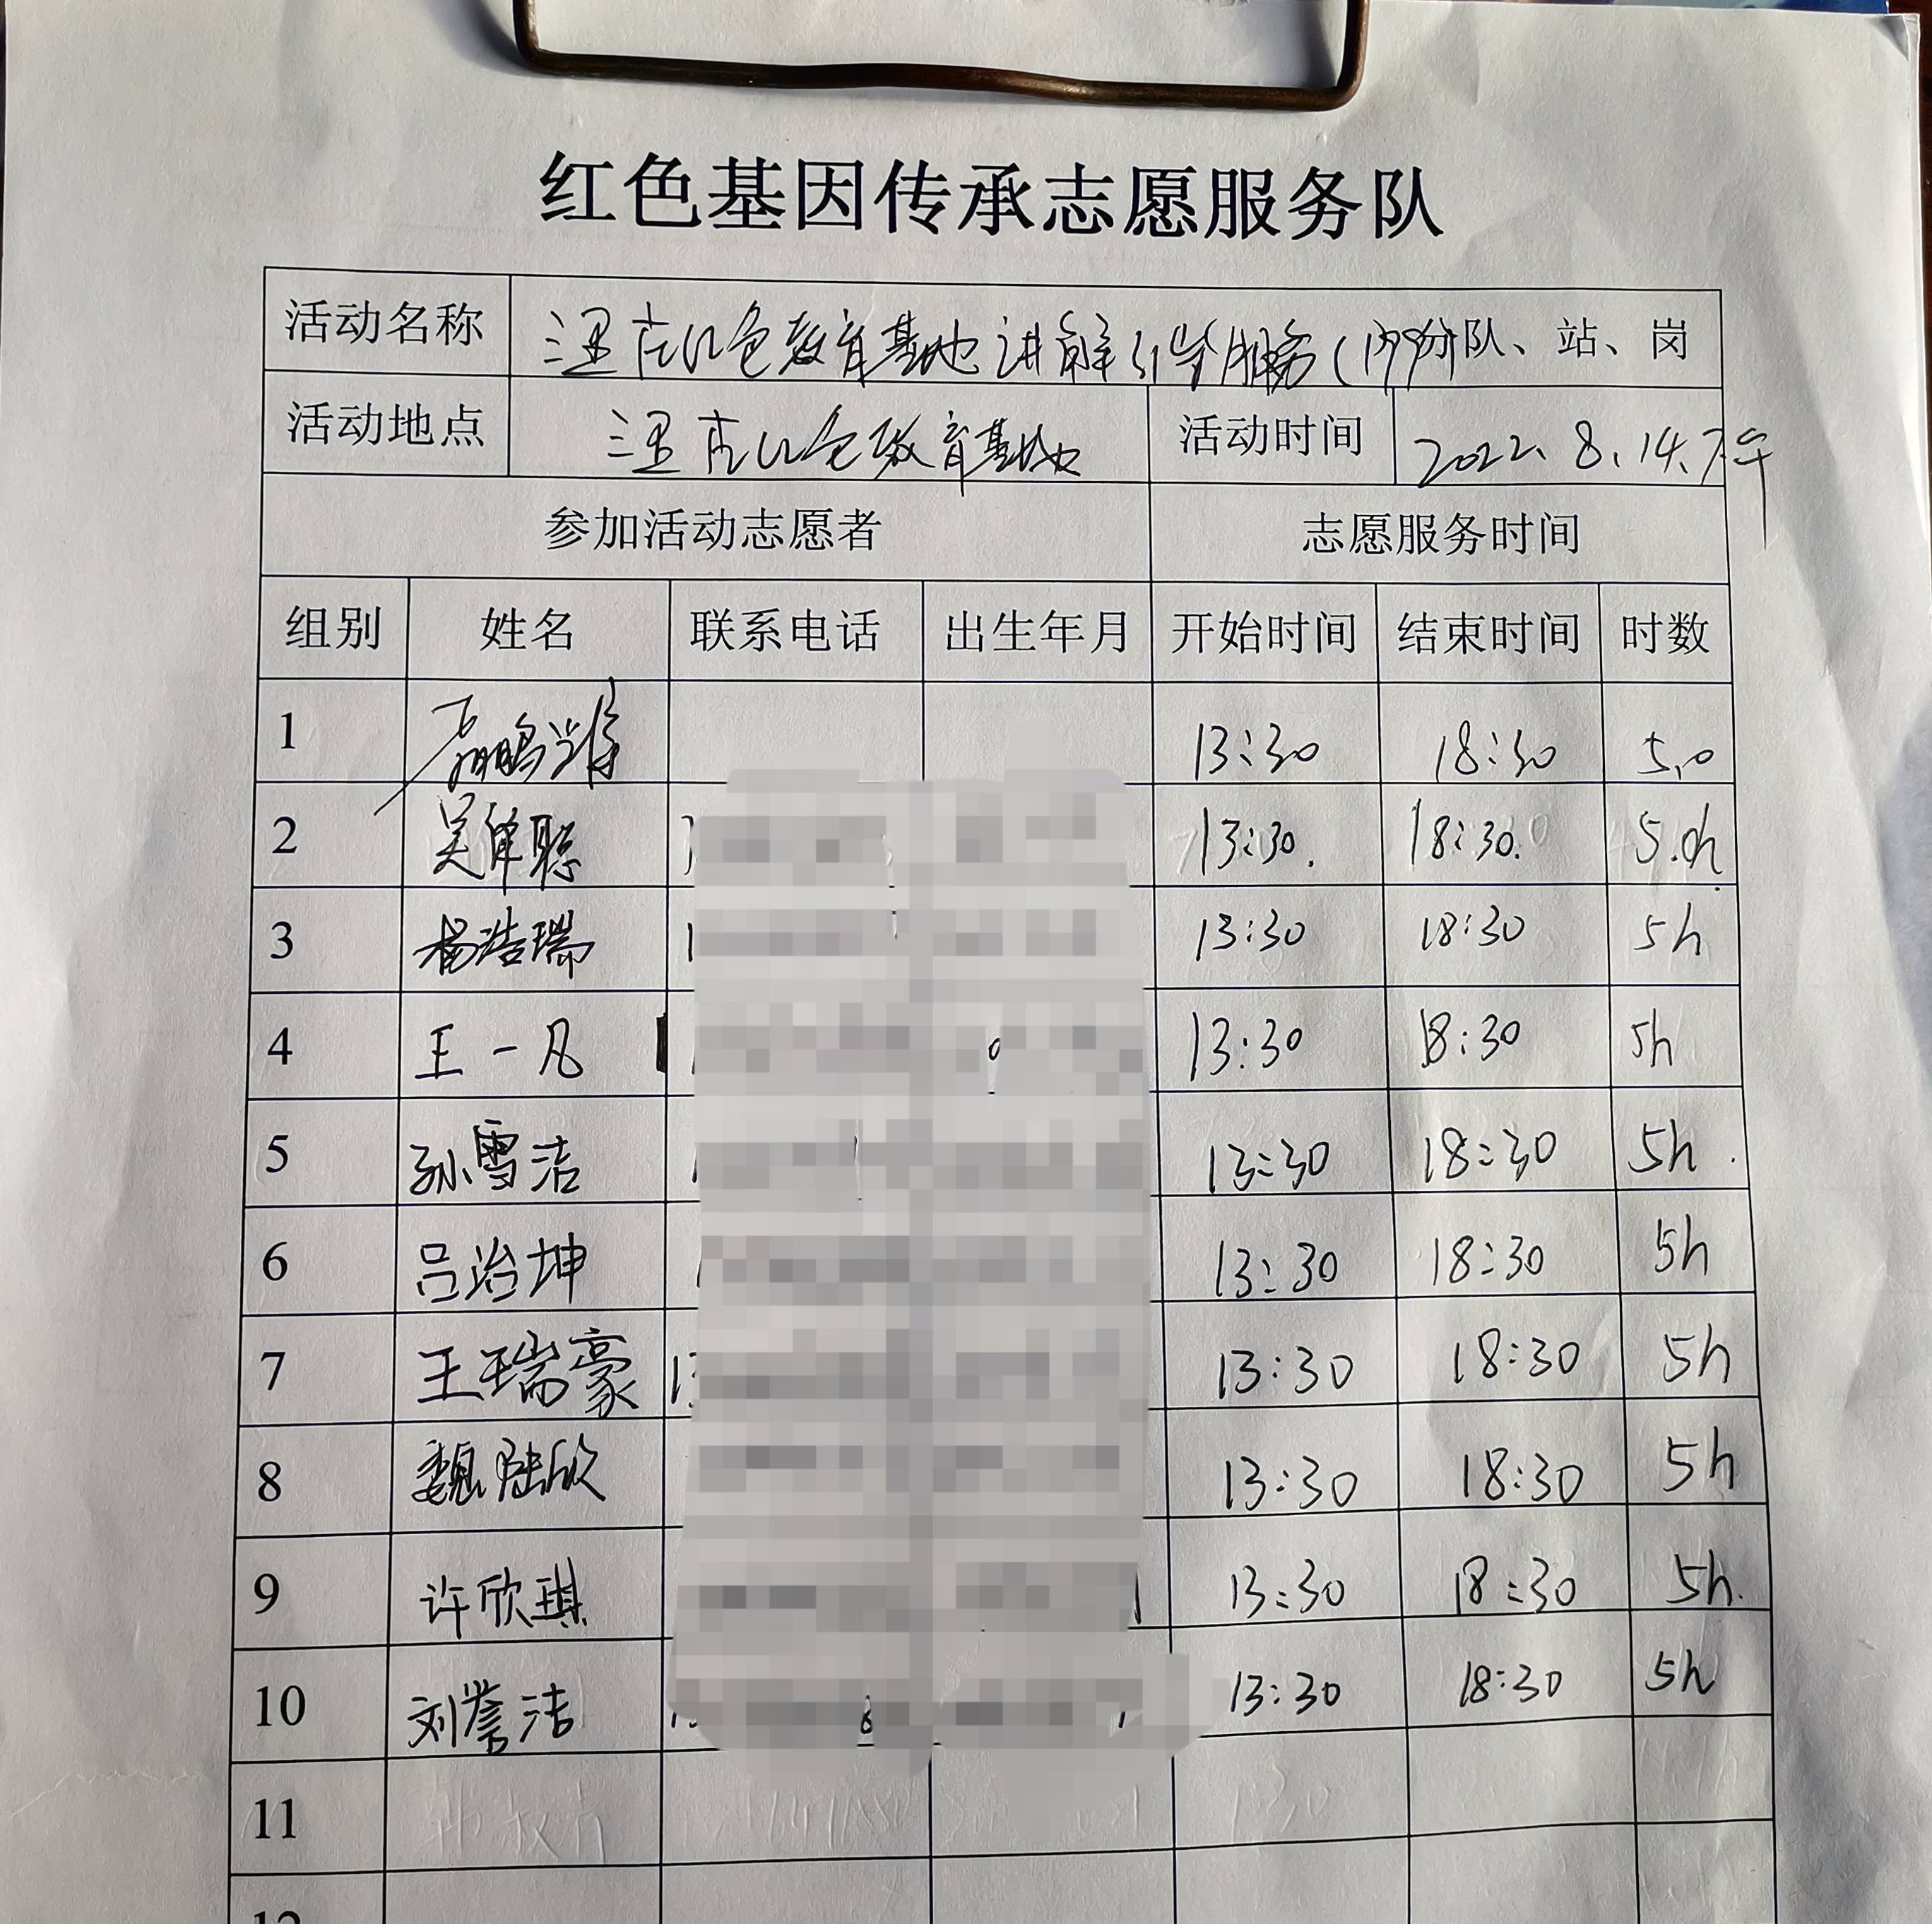 红色基因传承志愿服务队
活动名称 红色教育基地讲解引导服务 分队、站、岗
活动地点 红色教育基地 活动时间 2022.8.14.下午
参加活动志愿者 志愿服务时间
组别 姓名 联系电话 出生年月 开始时间 结束时间 时数
1 13:30 18:30 5.0
2 13:30. 18:30. 5.0h
3 杨浩瑞 13:30 18:30 5h
4 王一凡 13:30 18:30 5h
5 孙雪洁 13:30 18:30 5h.
6 吕治坤 13:30 18:30 5h
7 王瑞豪 13 13:30 18:30 5h
8 魏陆欣 13:30 18:30 5h
9 许欣琪 13:30 18:30 5h.
10 刘誉洁 8 13:30 18:30 5h
11
12